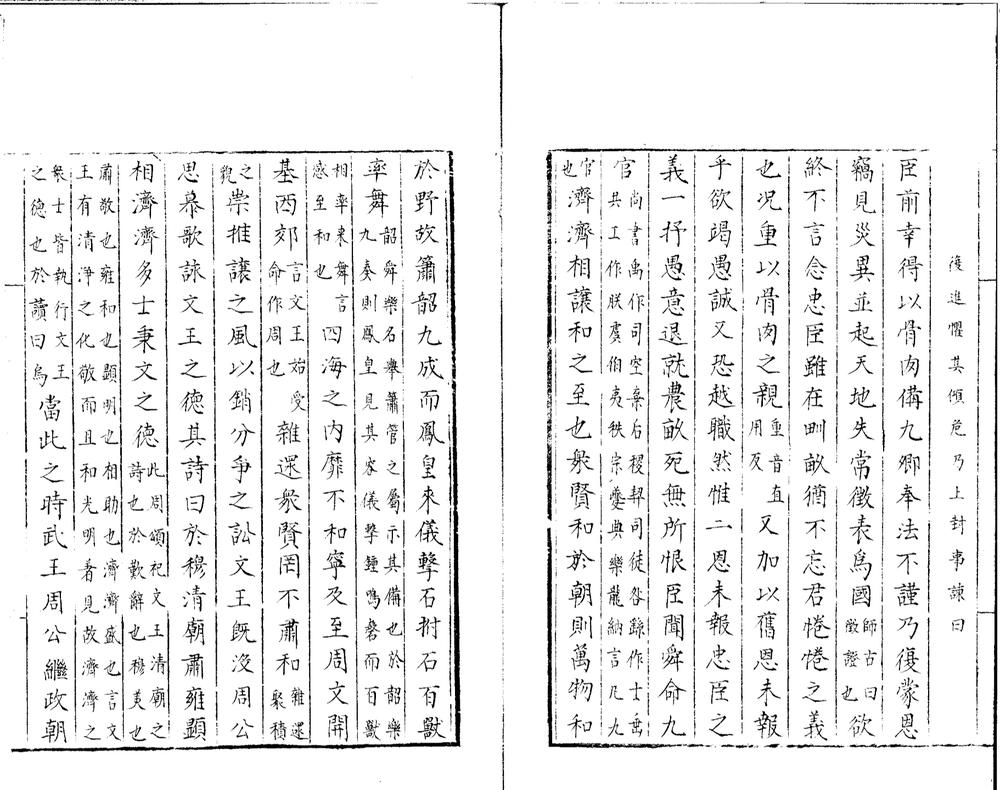 後進懼其傾危乃上封事諫曰
臣前幸得以骨肉備九卿奉法不謹乃復蒙恩
竊見災異並起天地失常徵表爲國師古曰徵證也欲
終不言念忠臣雖在甽畝猶不忘君惓惓之義
也况重以骨肉之親重音直用反又加以舊恩未報
乎欲竭愚誠又恐越職然惟二恩未報忠臣之
義一抒愚意退就農畝死無所恨臣聞舜命九
官尚書禹作司空棄后稷契司徒咎繇作士垂共工作朕虞伯夷秩宗夔典樂龍納言凡九
官也濟濟相讓和之至也衆賢和於朝則萬物和
於野故簫韶九成而鳳皇來儀擊石拊石百獸
率舞韶舜樂名舉簫管之屬示其備也於韶樂九奏則鳳皇見其容儀擊鍾鳴磬而百獸
相率來舞言感至和也四海之内靡不和寧及至周文開
基西郊言文王始受命作周也雜遝衆賢罔不肅和雜遝聚積
之貌崇推讓之風以銷分爭之訟文王既没周公
思慕歌詠文王之德其詩曰於穆清廟肅雍顯
相濟濟多士秉文之德此周頌祀文王清廟之詩也於歎辭也穆美也
肅敬也雍和也顯明也相助也濟濟盛也言文王有清浄之化敬而且和光明著見故濟濟之
衆士皆執行文王之德也於讀曰烏當此之時武王周公繼政朝